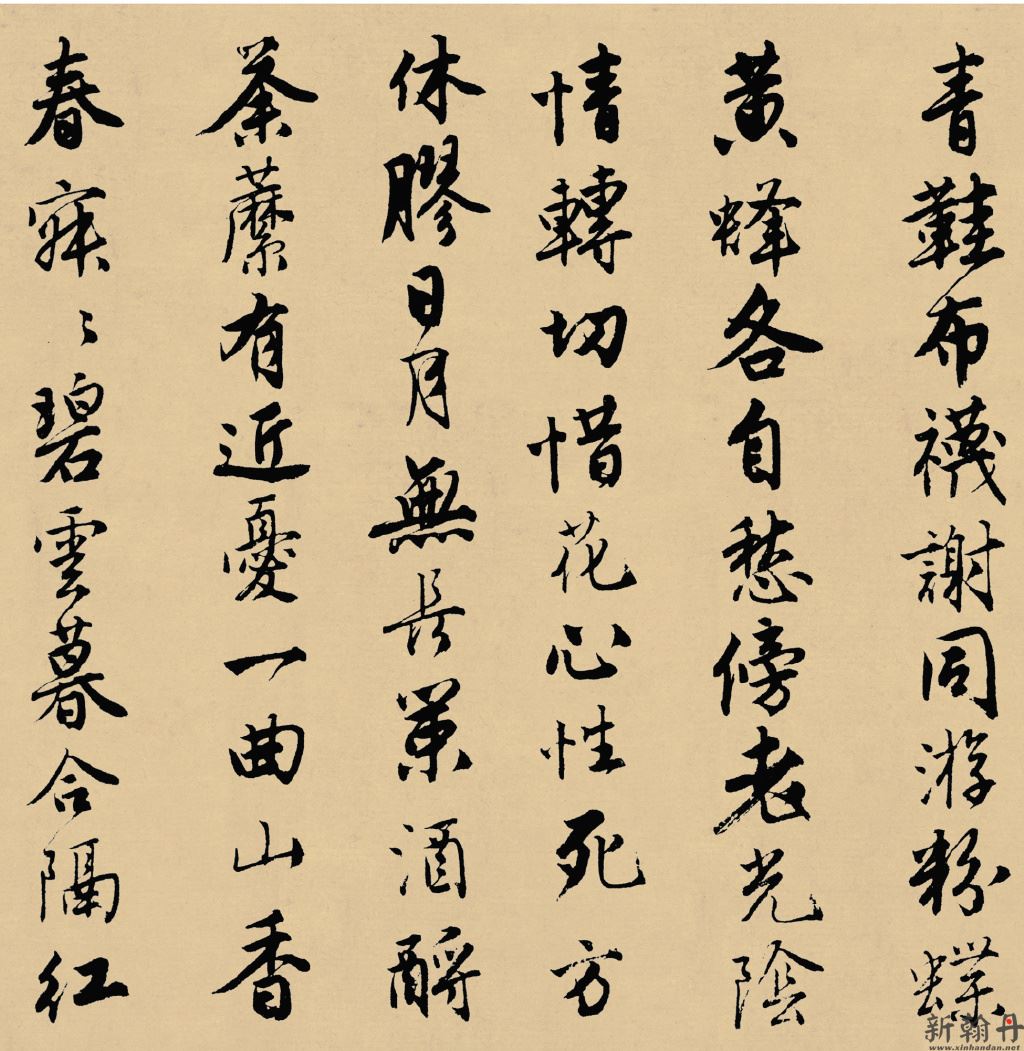 青鞋布襪謝同游粉蝶
黄蜂各自愁傍老光陰
情轉切惜花心性死方
休膠日月無長策酒酹
荼䕷有近憂一曲山香
春寂〻碧雲暮合隔紅
新翰丹
www.xinhandan.net